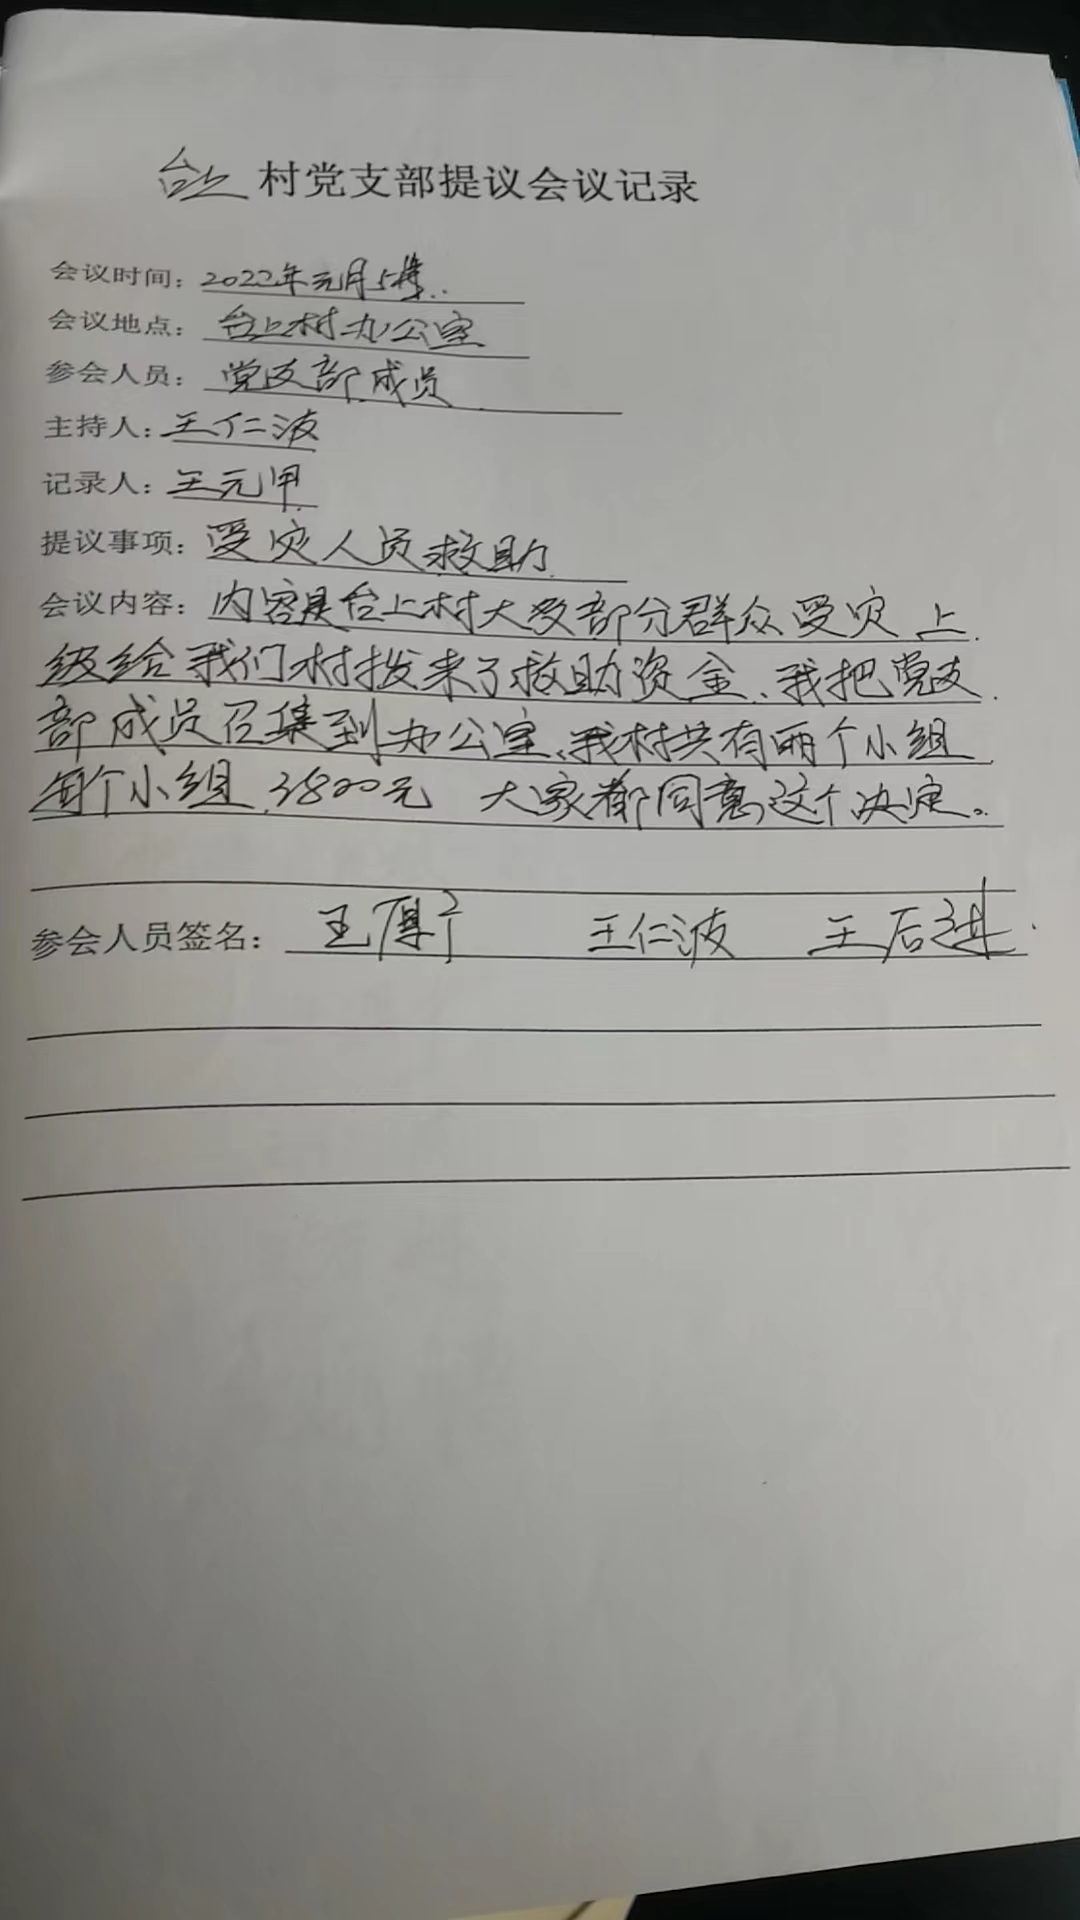 台上村党支部提议会议记录
会议时间：2022年元月5
会议地点：台上村办公室
参会人员：党支部成员
主持人：王仁波
记录人：王元甲
提议事项：受灾人员救助
会议内容：内容是台上村大多部分群众受灾 上
级给我们村拨来了救助资金、我把党支
部成员召集到办公室、我村共有两个小组
每个小组 3800元 大家都同意这个决定。
参会人员签名：王厚 王仁波 王后进